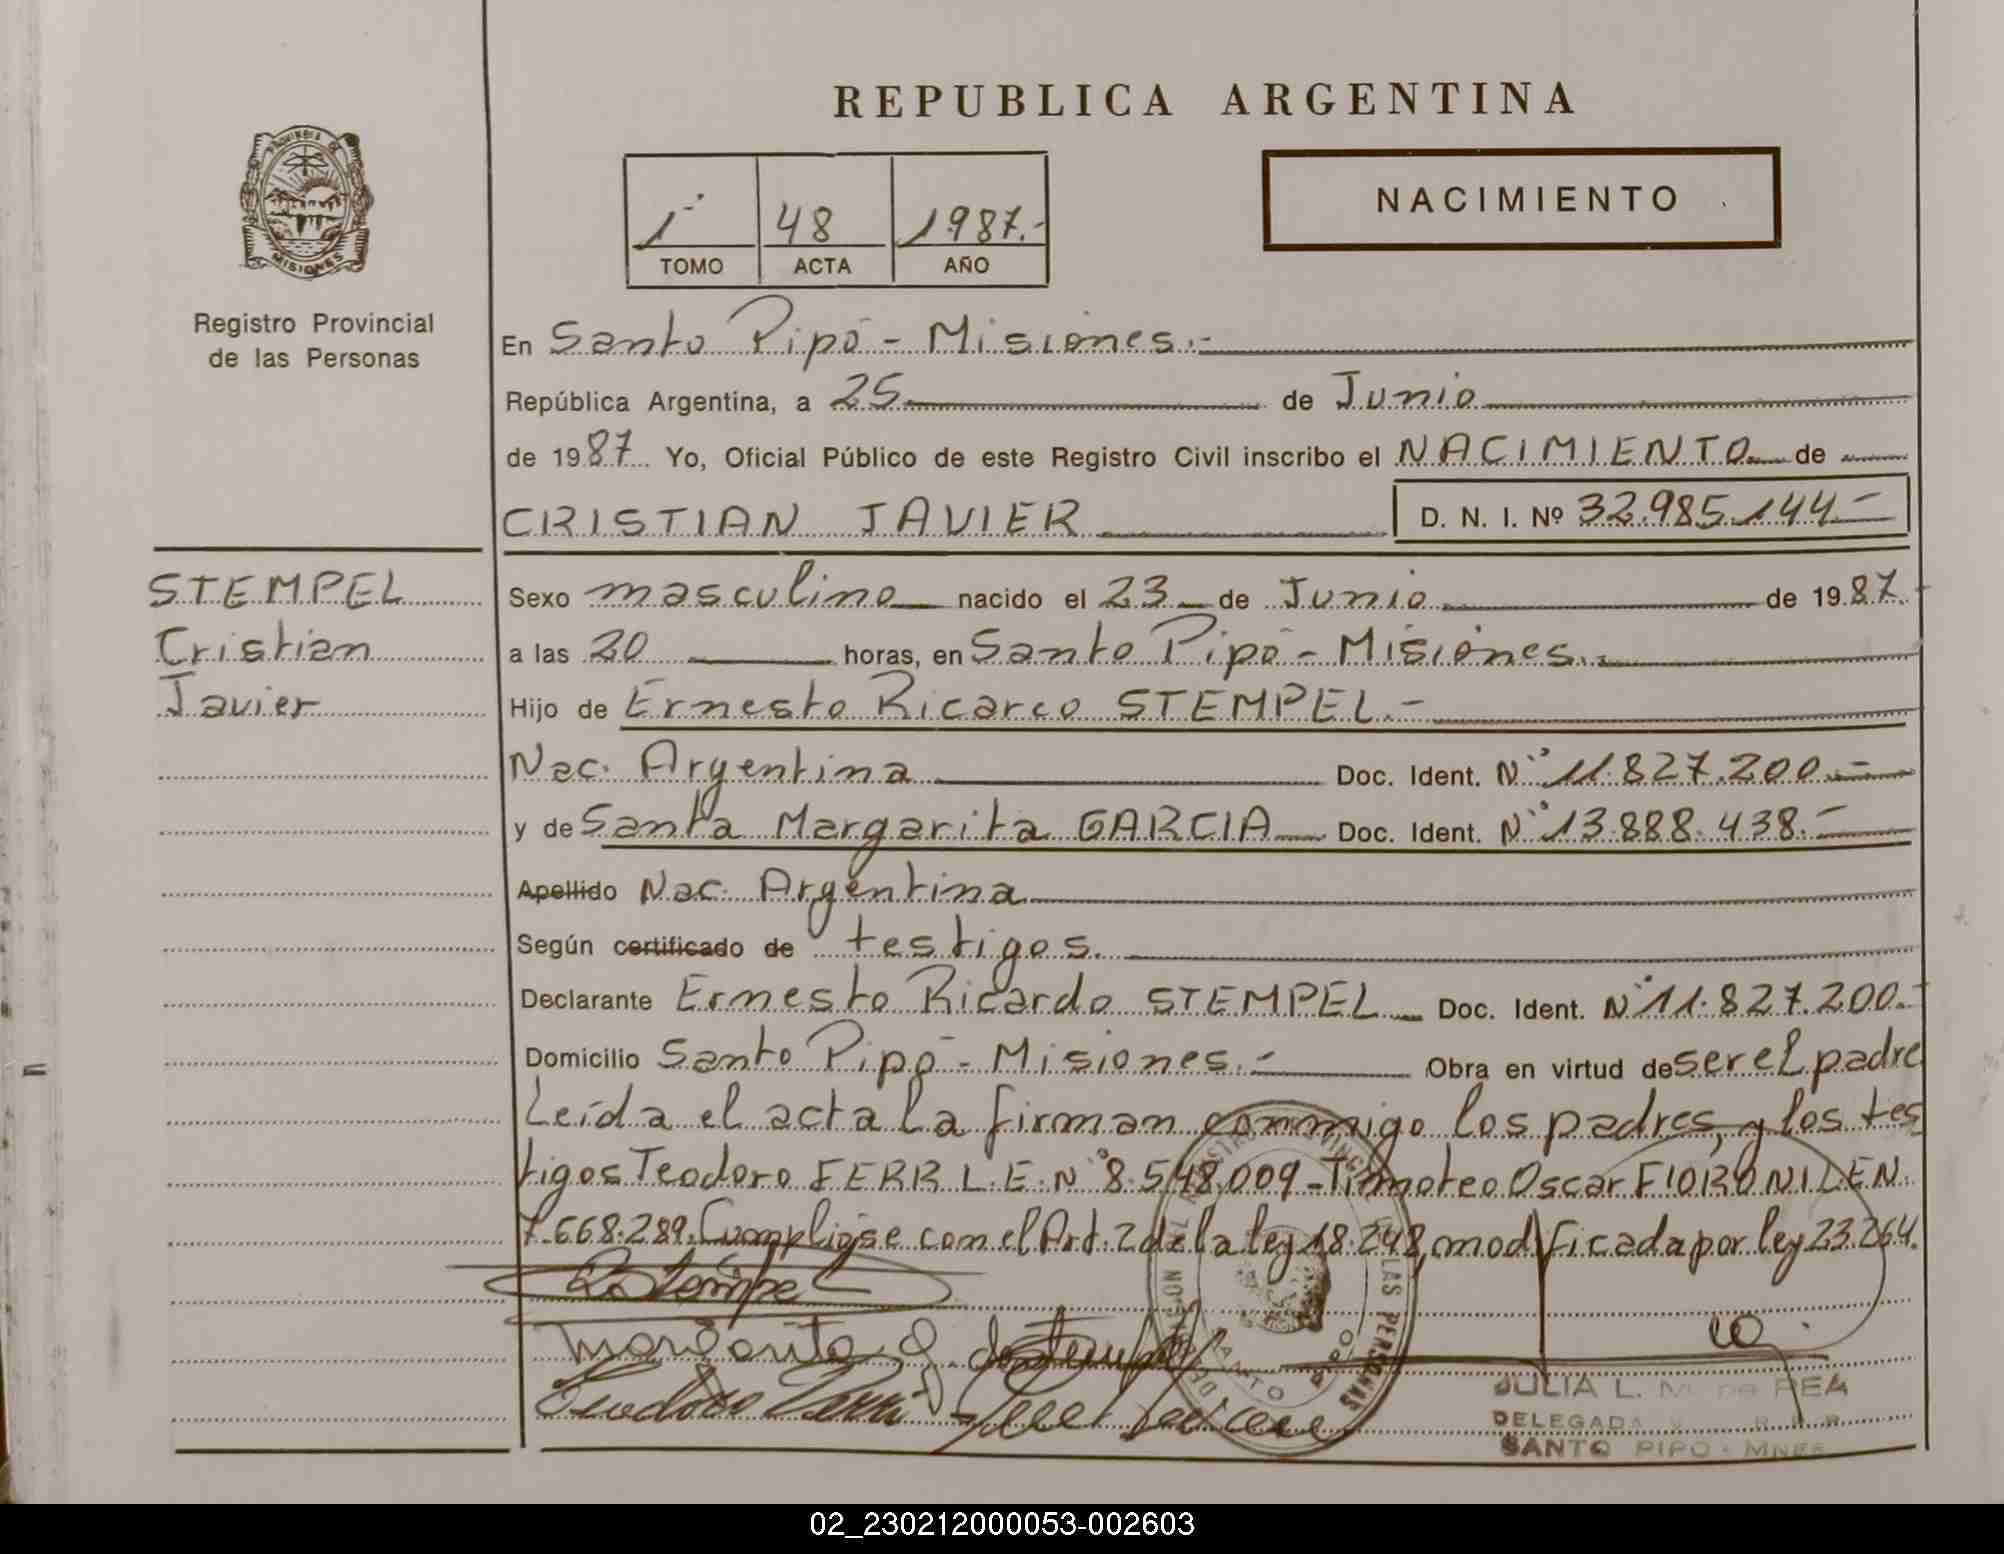 REPUBLICA ARGENTINA
NACIMIENTO
1º 48 1987.-
TOMO ACTA AÑO
PROVINCIA DE
MISIONES
Registro Provincial
de las Personas
En Santo Pipó - Misiones.-
República Argentina, a 25 de Junio
de 1987 Yo, Oficial Público de este Registro Civil inscribo el NACIMIENTO de
CRISTIAN JAVIER D. N. I. Nº 32.985.144-
STEMPEL
Cristian
Javier
Sexo masculino nacido el 23 de Junio de 1987.
a las 20 horas, en Santo Pipó - Misiones.-
Hijo de Ernesto Ricarco STEMPEL.-
Nac. Argentina Doc. Ident. Nº 11.827.200.-
y de Santa Margarita GARCIA Doc. Ident. Nº 13.888.438.-
Apellido Nac. Argentina
Según certificado de testigos.
Declarante Ernesto Ricardo STEMPEL Doc. Ident. Nº 11.827.200.-
Domicilio Santo Pipó - Misiones.- Obra en virtud de ser el padre
Leída el acta la firman conmigo los padres, y los tes
tigos Teodoro FERR L.E. Nº 8.548.009 - Timoteo Oscar FIORONI L.E N.
7.668.289. Cumplióse con el Art. 2 de la ley 18.248, modificada por ley 23.264.
Margarita G. de Stempel
JULIA L. REA
DELEGADA
SANTO PIPO - MNES
02_230212000053-002603